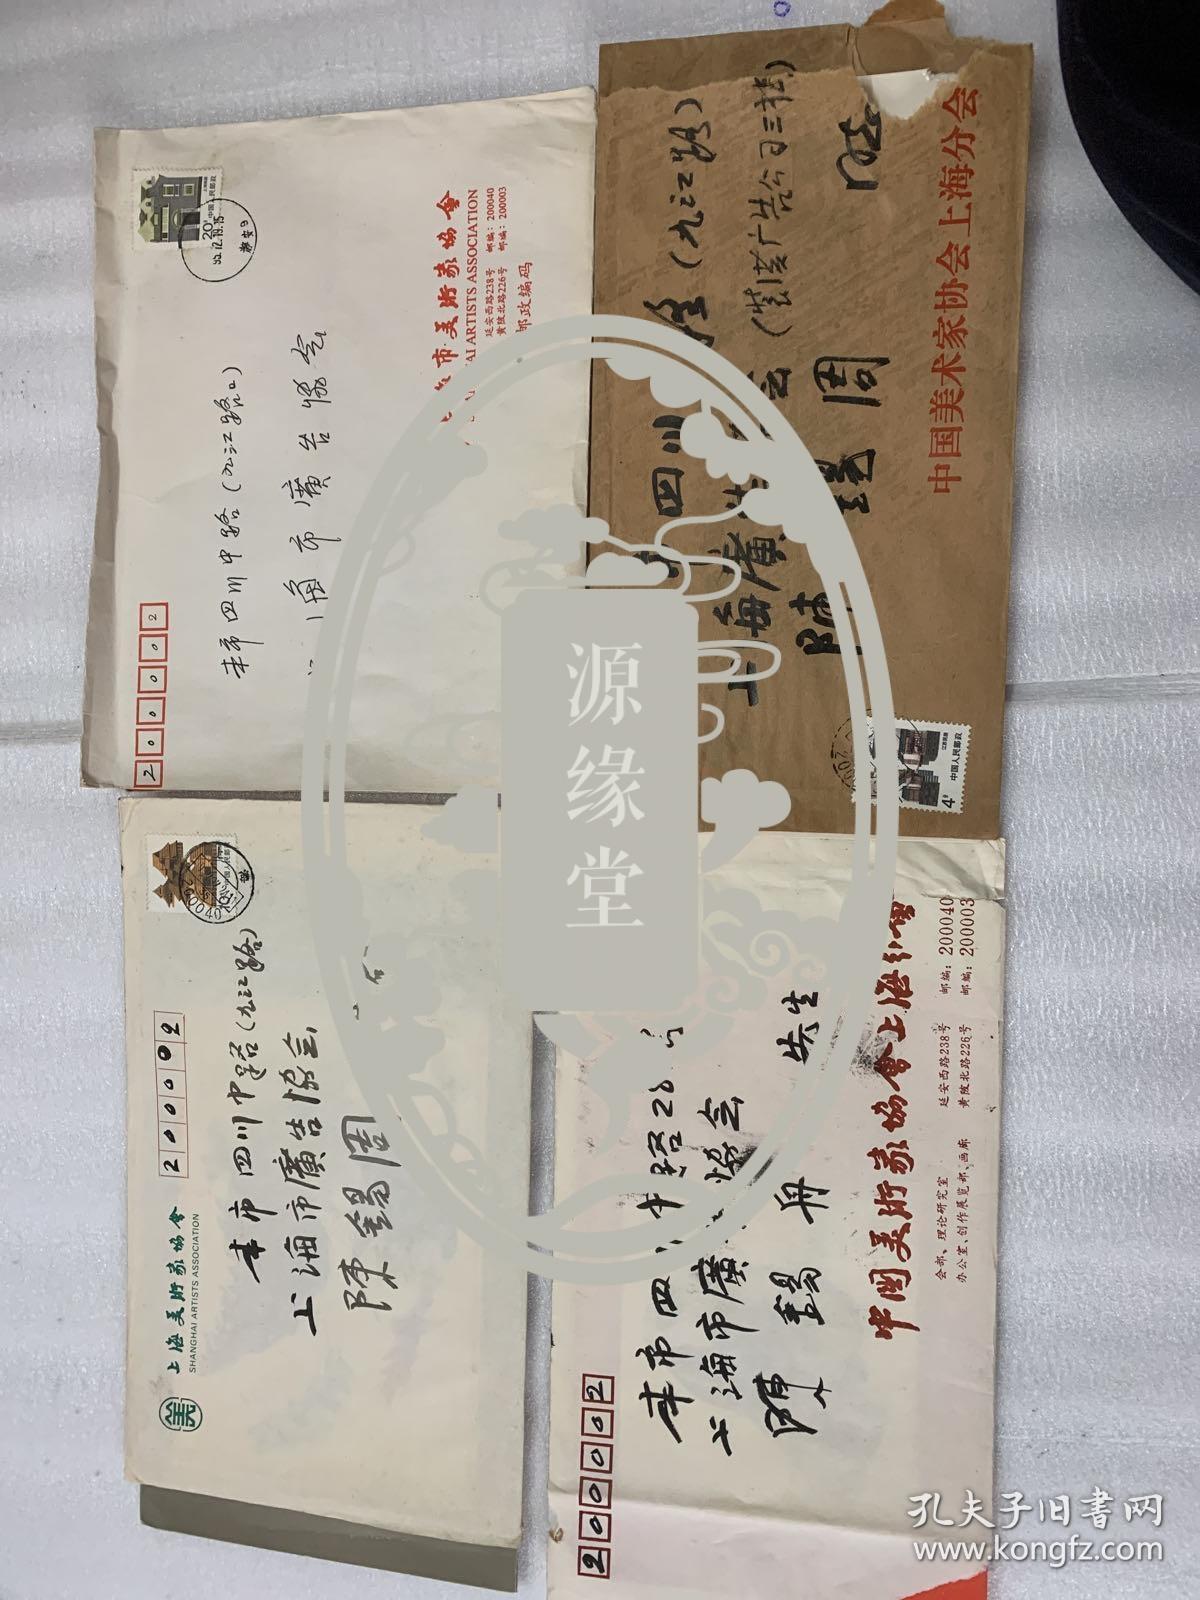 200002
本市四川中路(九江路口)
市廣告協会
市美術家協會
AI ARTISTS ASSOCIATION
延安西路238号 邮编：200040
黄陂北路226号 邮编：200003
邮政编码
20分
中国人民邮政
四川 (九江路)
上海廣告 会(装潢广告公司三楼)
陳錫周
中国美术家协会上海分会
4分
中国人民邮政
江苏民居
上海美術家協會
SHANGHAI ARTISTS ASSOCIATION
200002
本市四川中路(九江路)
上海市廣告協会
陳錫周
200002
本市四川中路28
上海市廣 協会
陳錫舟 先生
中國美術家協會上海分會
会部、理论研究室 延安西路238号 邮编：200040
办公室、创作展览部、画廊 黄陂北路226号 邮编：200003
源缘堂
孔夫子旧书网
www.kongfz.com